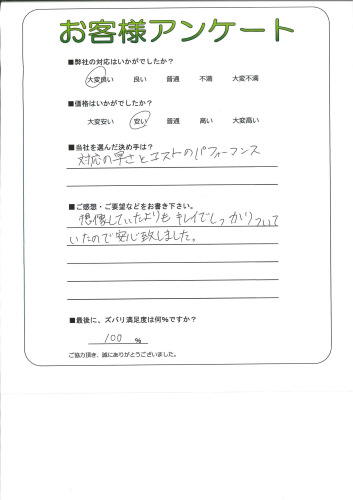 お客様アンケート
■弊社の対応はいかがでしたか？
大変良い 良い 普通 不満 大変不満
■価格はいかがでしたか？
大変安い 安い 普通 高い 大変高い
■当社を選んだ決め手は？
対応の早さとコストのパフォーマンス
■ご感想・ご要望などをお書き下さい。
想像していたよりもキレイでしっかりついて
いたので安心致しました。
■最後に、ズバリ満足度は何%ですか？
100 %
ご協力頂き、誠にありがとうございました。